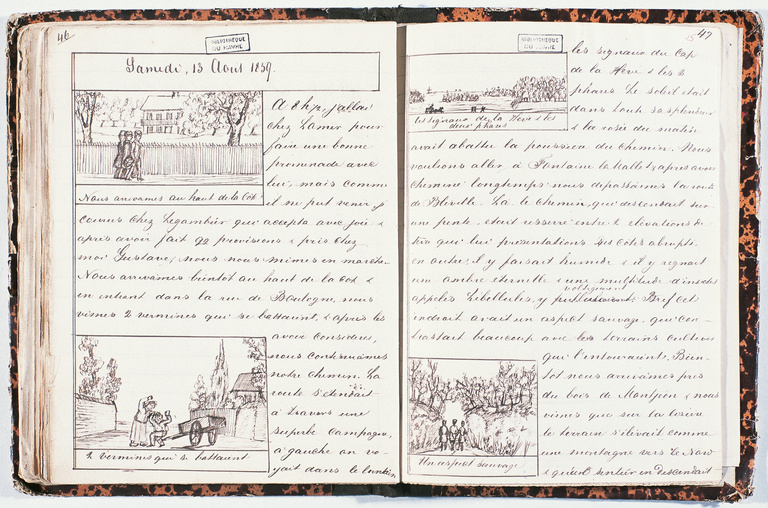 46
BIBLIOTHEQUE
DU HAVRE
Samedi, 13 Aout 1859.
A 6 h ½, j'allai
chez Lamer pour
faire une bonne
promenade avec
lui, mais comme
il ne put venir, je
Nous arrivames au haut de la Côte
courus chez Legambier qui accepta avec joie &
après avoir fait qq provisions & pris chez
moi Gustave, nous nous mimes en marche.
Nous arrivames bientot au haut de la Cote &
en entrant dans la rue de Boulogne, nous
vimes 2 vermines qui se battaient, & après les
avoir considérés,
nous continuames
notre chemin. La
route s'étendait
à travers une
superbe campagne,
à gauche on vo-
yait dans le lointain,
2 vermines qui se battaient
47
BIBLIOTHEQUE
DU HAVRE
les signaux du Cap
de la Hève & les 2
phares. Le soleil était
dans toute sa splendeur
& la rosée du matin
Les signaux de la Hève & les
deux phares
avait abattu la poussière du chemin. Nous
voulions aller à Fontaine la Mallet & après avoir
cheminé longtemps nous dépassâmes la route
de Bléville. Là le chemin, qui descendait sur
une pente, était resserré entre 2 élévations de
qui lui présentations des cotés abrupts.
en outre, il y faisait humide & il y régnait
une ombre éternelle & une multitude d'insectes
appelés Libellules, y voltigeaient. Bref cet
endroit avait un aspect sauvage qui con-
trastait beaucoup avec les terrains cultivés
qui l'entouraient. Bien-
tot nous arrivames près
du bois de Montgeon, & nous
vimes que sur la lisière
le terrain s'élevait comme
une montagne vers le Nord
& qu'un sentier en descendait
Un aspect sauvage